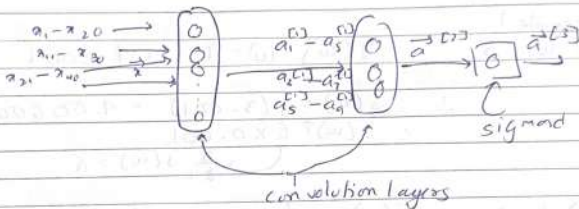 x₁ - x₂₀
x₁₁ - x₃₀
x₂₁ - x₄₀
x⃗
a₁^[1] - a₅^[1]
a₃^[1] - a₇^[1]
a₅^[1] - a₉^[1]
a⃗^[2]
a⃗^[3]
sigmoid
convolution layers